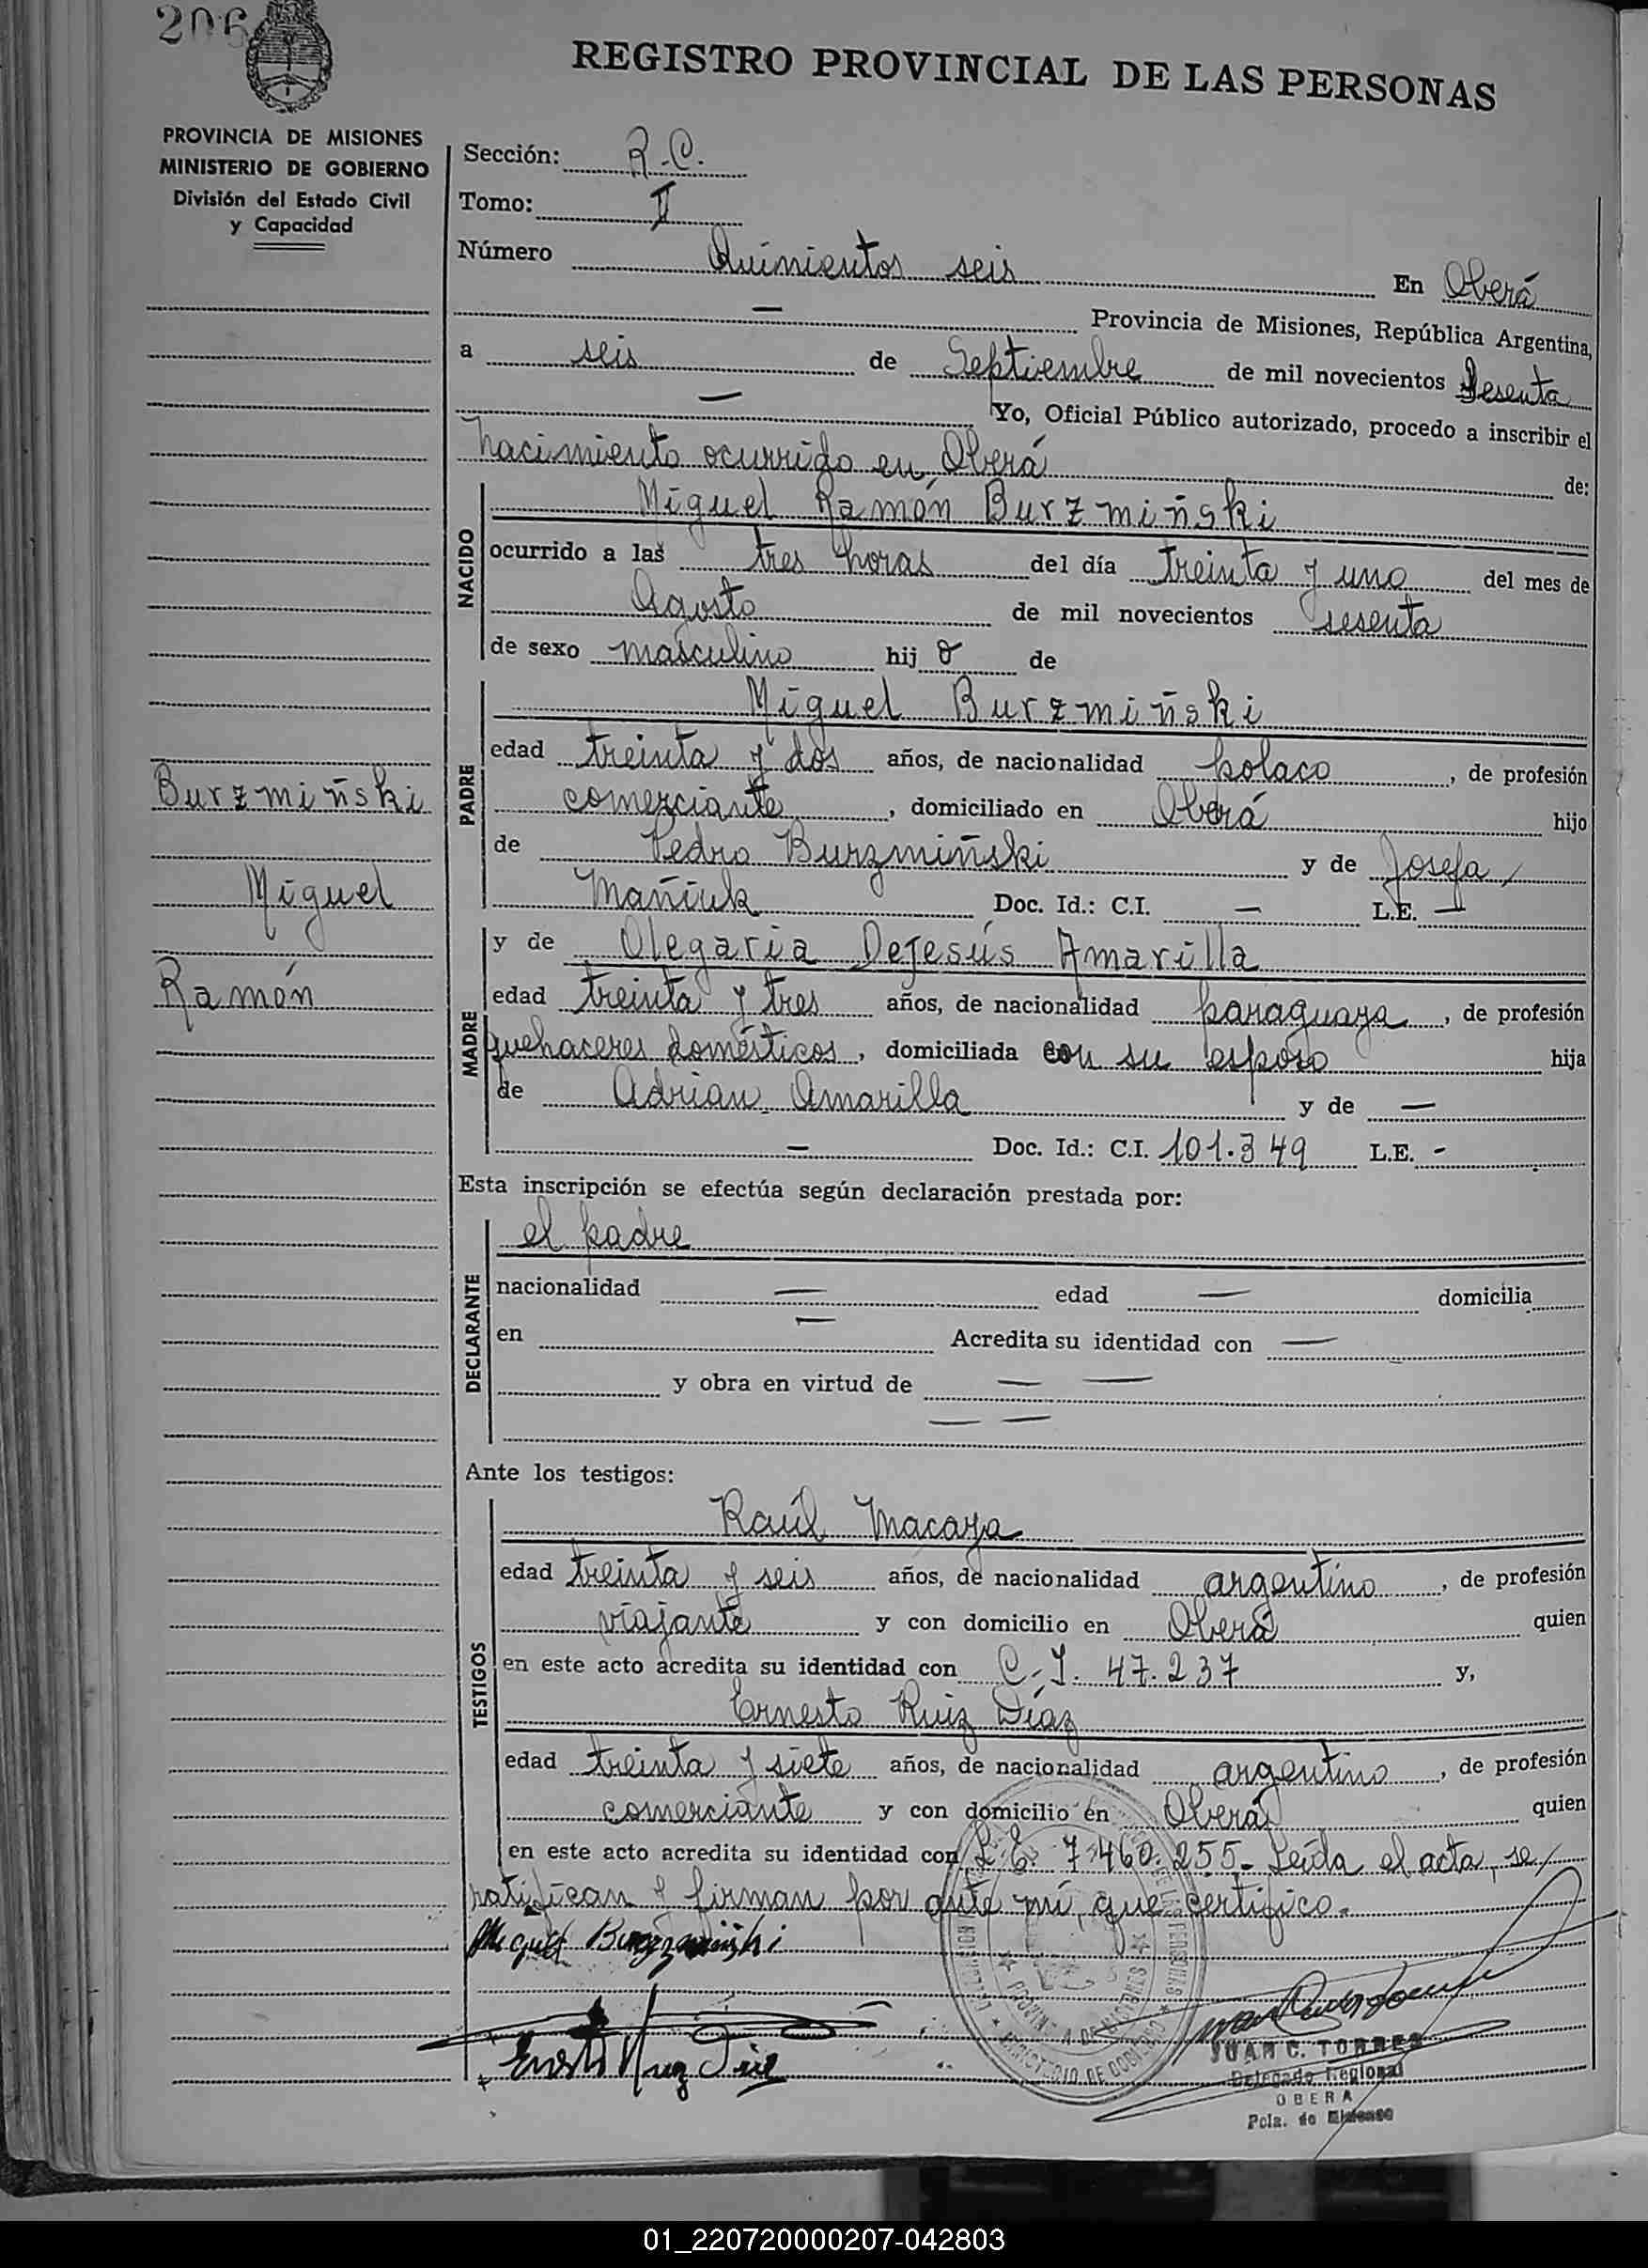 206
REGISTRO PROVINCIAL DE LAS PERSONAS
PROVINCIA DE MISIONES
MINISTERIO DE GOBIERNO
División del Estado Civil
y Capacidad
Sección: R.C.
Tomo: II
Número Quinientos seis En Oberá
— Provincia de Misiones, República Argentina,
a seis de Septiembre de mil novecientos Sesenta
— Yo, Oficial Público autorizado, procedo a inscribir el
nacimiento ocurrido en Oberá de:
NACIDO
Miguel Ramón Burzmiñski
ocurrido a las tres horas del día treinta y uno del mes de
Agosto de mil novecientos sesenta
de sexo masculino hij o de
PADRE
Miguel Burzmiñski
edad treinta y dos años, de nacionalidad polaco, de profesión
comerciante, domiciliado en Oberá hijo
de Pedro Burzmiñski y de Josefa /
Mañiuk Doc. Id.: C.I. — L.E. —
Burzmiñski
Miguel
Ramón
MADRE
y de Olegaria Dejesús Amarilla
edad treinta y tres años, de nacionalidad paraguaya, de profesión
quehaceres domésticos, domiciliada con su esposo hija
de Adrian Amarilla y de —
— Doc. Id.: C.I. 101.349 L.E. -
Esta inscripción se efectúa según declaración prestada por:
DECLARANTE
el padre
nacionalidad — edad — domicilia
en — Acredita su identidad con —
y obra en virtud de — —
— —
Ante los testigos:
TESTIGOS
Raúl Macaya
edad treinta y seis años, de nacionalidad argentino, de profesión
viajante y con domicilio en Oberá quien
en este acto acredita su identidad con C.I. 47.237 y,
Ernesto Ruiz Díaz
edad treinta y siete años, de nacionalidad argentino, de profesión
comerciante y con domicilio en Oberá quien
en este acto acredita su identidad con L.E. 7.460.255- Leída el acta, se /
ratifican y firman por ante mí, que certifico.
Miguel Burzmiñski
Ernesto Ruiz Díaz
JUAN C. TORRES
Delegado Regional
OBERA
Pcia. de Misiones
PROVINCIA DE MISIONES
MINISTERIO DE GOBIERNO
01_220720000207-042803